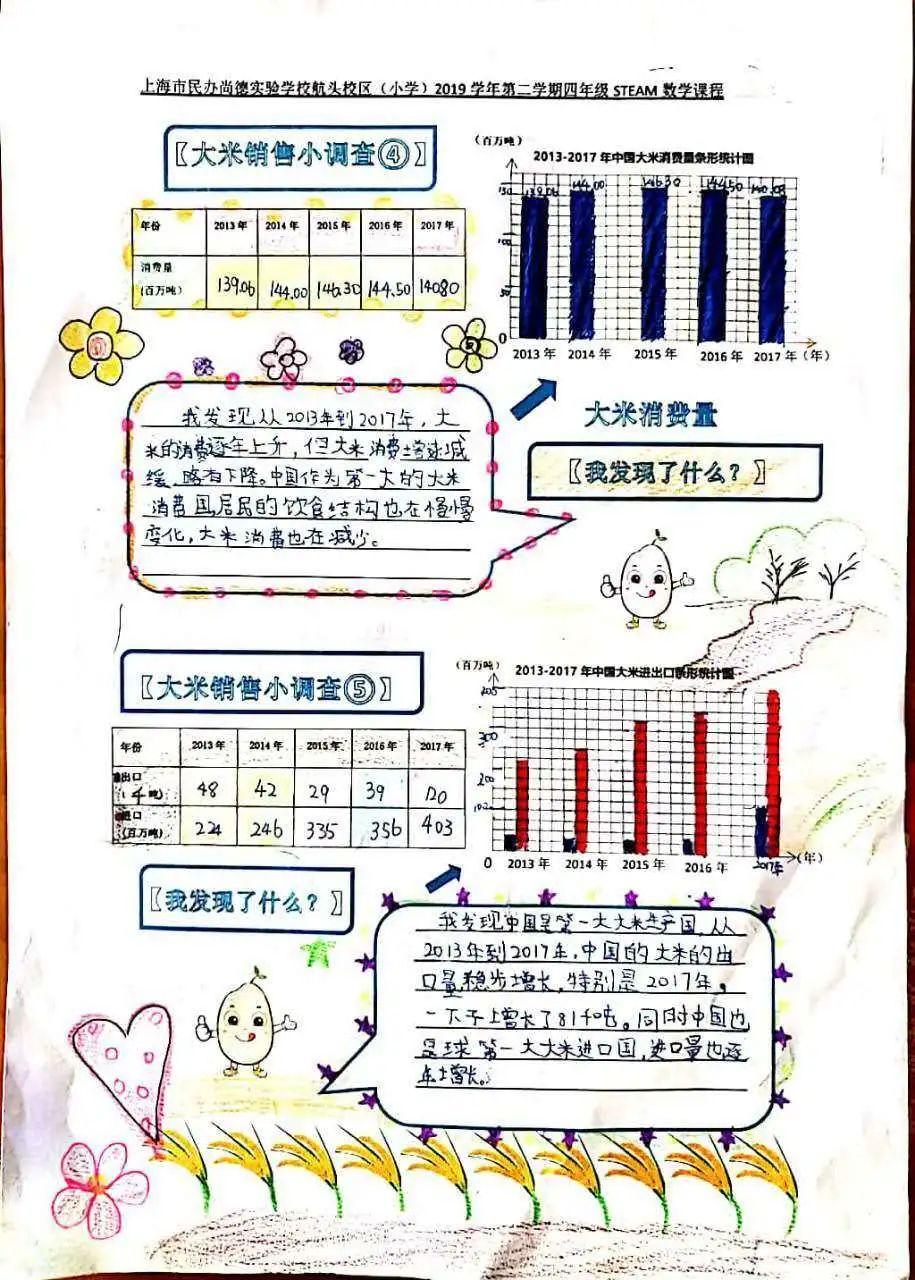 上海市民办尚德实验学校航头校区（小学）2019学年第二学期四年级STEAM数学课程
【大米销售小调查④】
年份 2013年 2014年 2015年 2016年 2017年
消费量
(百万吨) 139.06 144.00 146.30 144.50 14080
(百万吨)
2013-2017年中国大米消费量条形统计图
139.06 144.00 146.30 144.50 140.08
150
100
50
0
2013年 2014年 2015年 2016年 2017年（年）
我发现从2013年到2017年，大
米的消费逐年上升，但大米消费增速减
缓，略有下降。中国作为第一大的大米
消费国居民的饮食结构也在慢慢
变化，大米消费也在减少。
大米消费量
【我发现了什么？】
【大米销售小调查⑤】
年份 2013年 2014年 2015年 2016年 2017年
出口
(千吨) 48 42 29 39 120
进口
(百万吨) 224 246 335 356 403
(百万吨)
2013-2017年中国大米进出口条形统计图
405
300
200
100
0
2013年 2014年 2015年 2016年 2017年 (年)
【我发现了什么？】
我发现中国是第一大大米生产国，从
2013年到2017年，中国的大米的出
口量稳步增长，特别是2017年，
一下子上增长了81千吨。同时中国也
是球第一大大米进口国，进口量也逐
年增长。